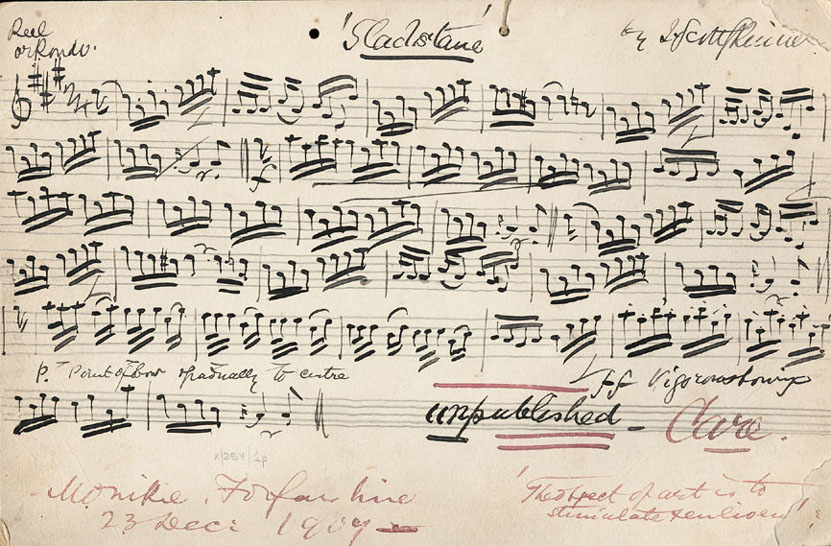 Reel
or Rondo.
'Gladstone'
by J. Scott Skinner
p. Point of bow gradually to centre
ff Vigorous bowing
unpublished – Care.
x/254/1p
Monikie. Forfarshire
23 Decr 1909
'The object of art is to
stimulate & enliven'!